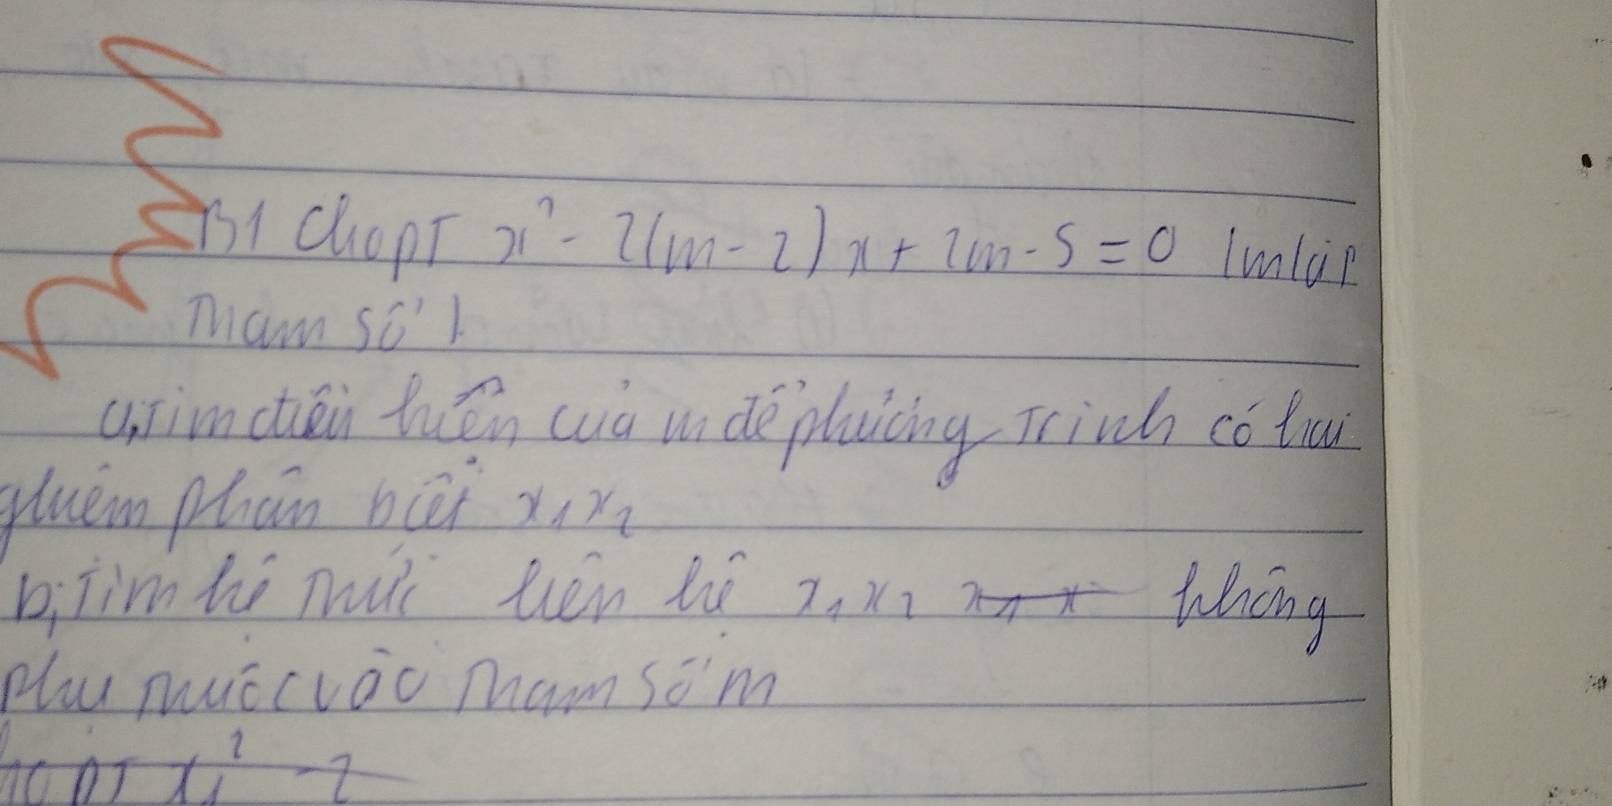 B1 Cho pT x² - 2(m - 2)x + 2m - 5 = 0 (m là
tham số).
a, Tìm điều kiện của m để phương trình có hai
nghiệm phân biệt x₁ x₂
b, Tìm hệ thức liên hệ x₁ x₂ không
phụ thuộc vào tham số m